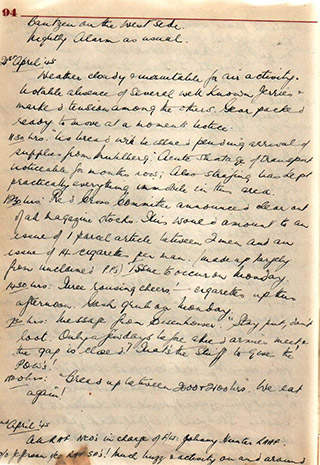 94
Bautzen on the West side.
Nightly Alarm as usual.
2nd April '45
Weather cloudy & unsuitable for air activity.
Notable absence of several well known Jerries &
marked tension among the others. Gear packed
ready to move at a moments notice.
1130 hrs: No bread will be issued pending arrival of
supplies from Muhlberg. Acute shortage of transport
noticeable for months now; Also strafing has kept
practically everything immobile in this area.
hrs: Red Cross Committee announced clear out
of all magazine stocks. This would amount to an
issue of 1 parcel article between 2 men and an
issue of 14 cigarettes per man. (made up largely
from unclaimed P.P's) Issue to occur on Monday.
1430 hrs: Three rousing cheers! - cigarettes up this
afternoon. Nash grub up Monday!
hrs: Message from Eisenhower! "Stay put, don't
loot. Only a few days before allied armies meet &
the gap is closed! That's the stuff to give the
POWs!
hrs: "Bread up between 2000 & 2100 hrs. We eat
again!
April '45
RAF NCO's in charge of P/W. Johnny Hunter RAAF
from the RAF SO's! Much buzz & activity on and around